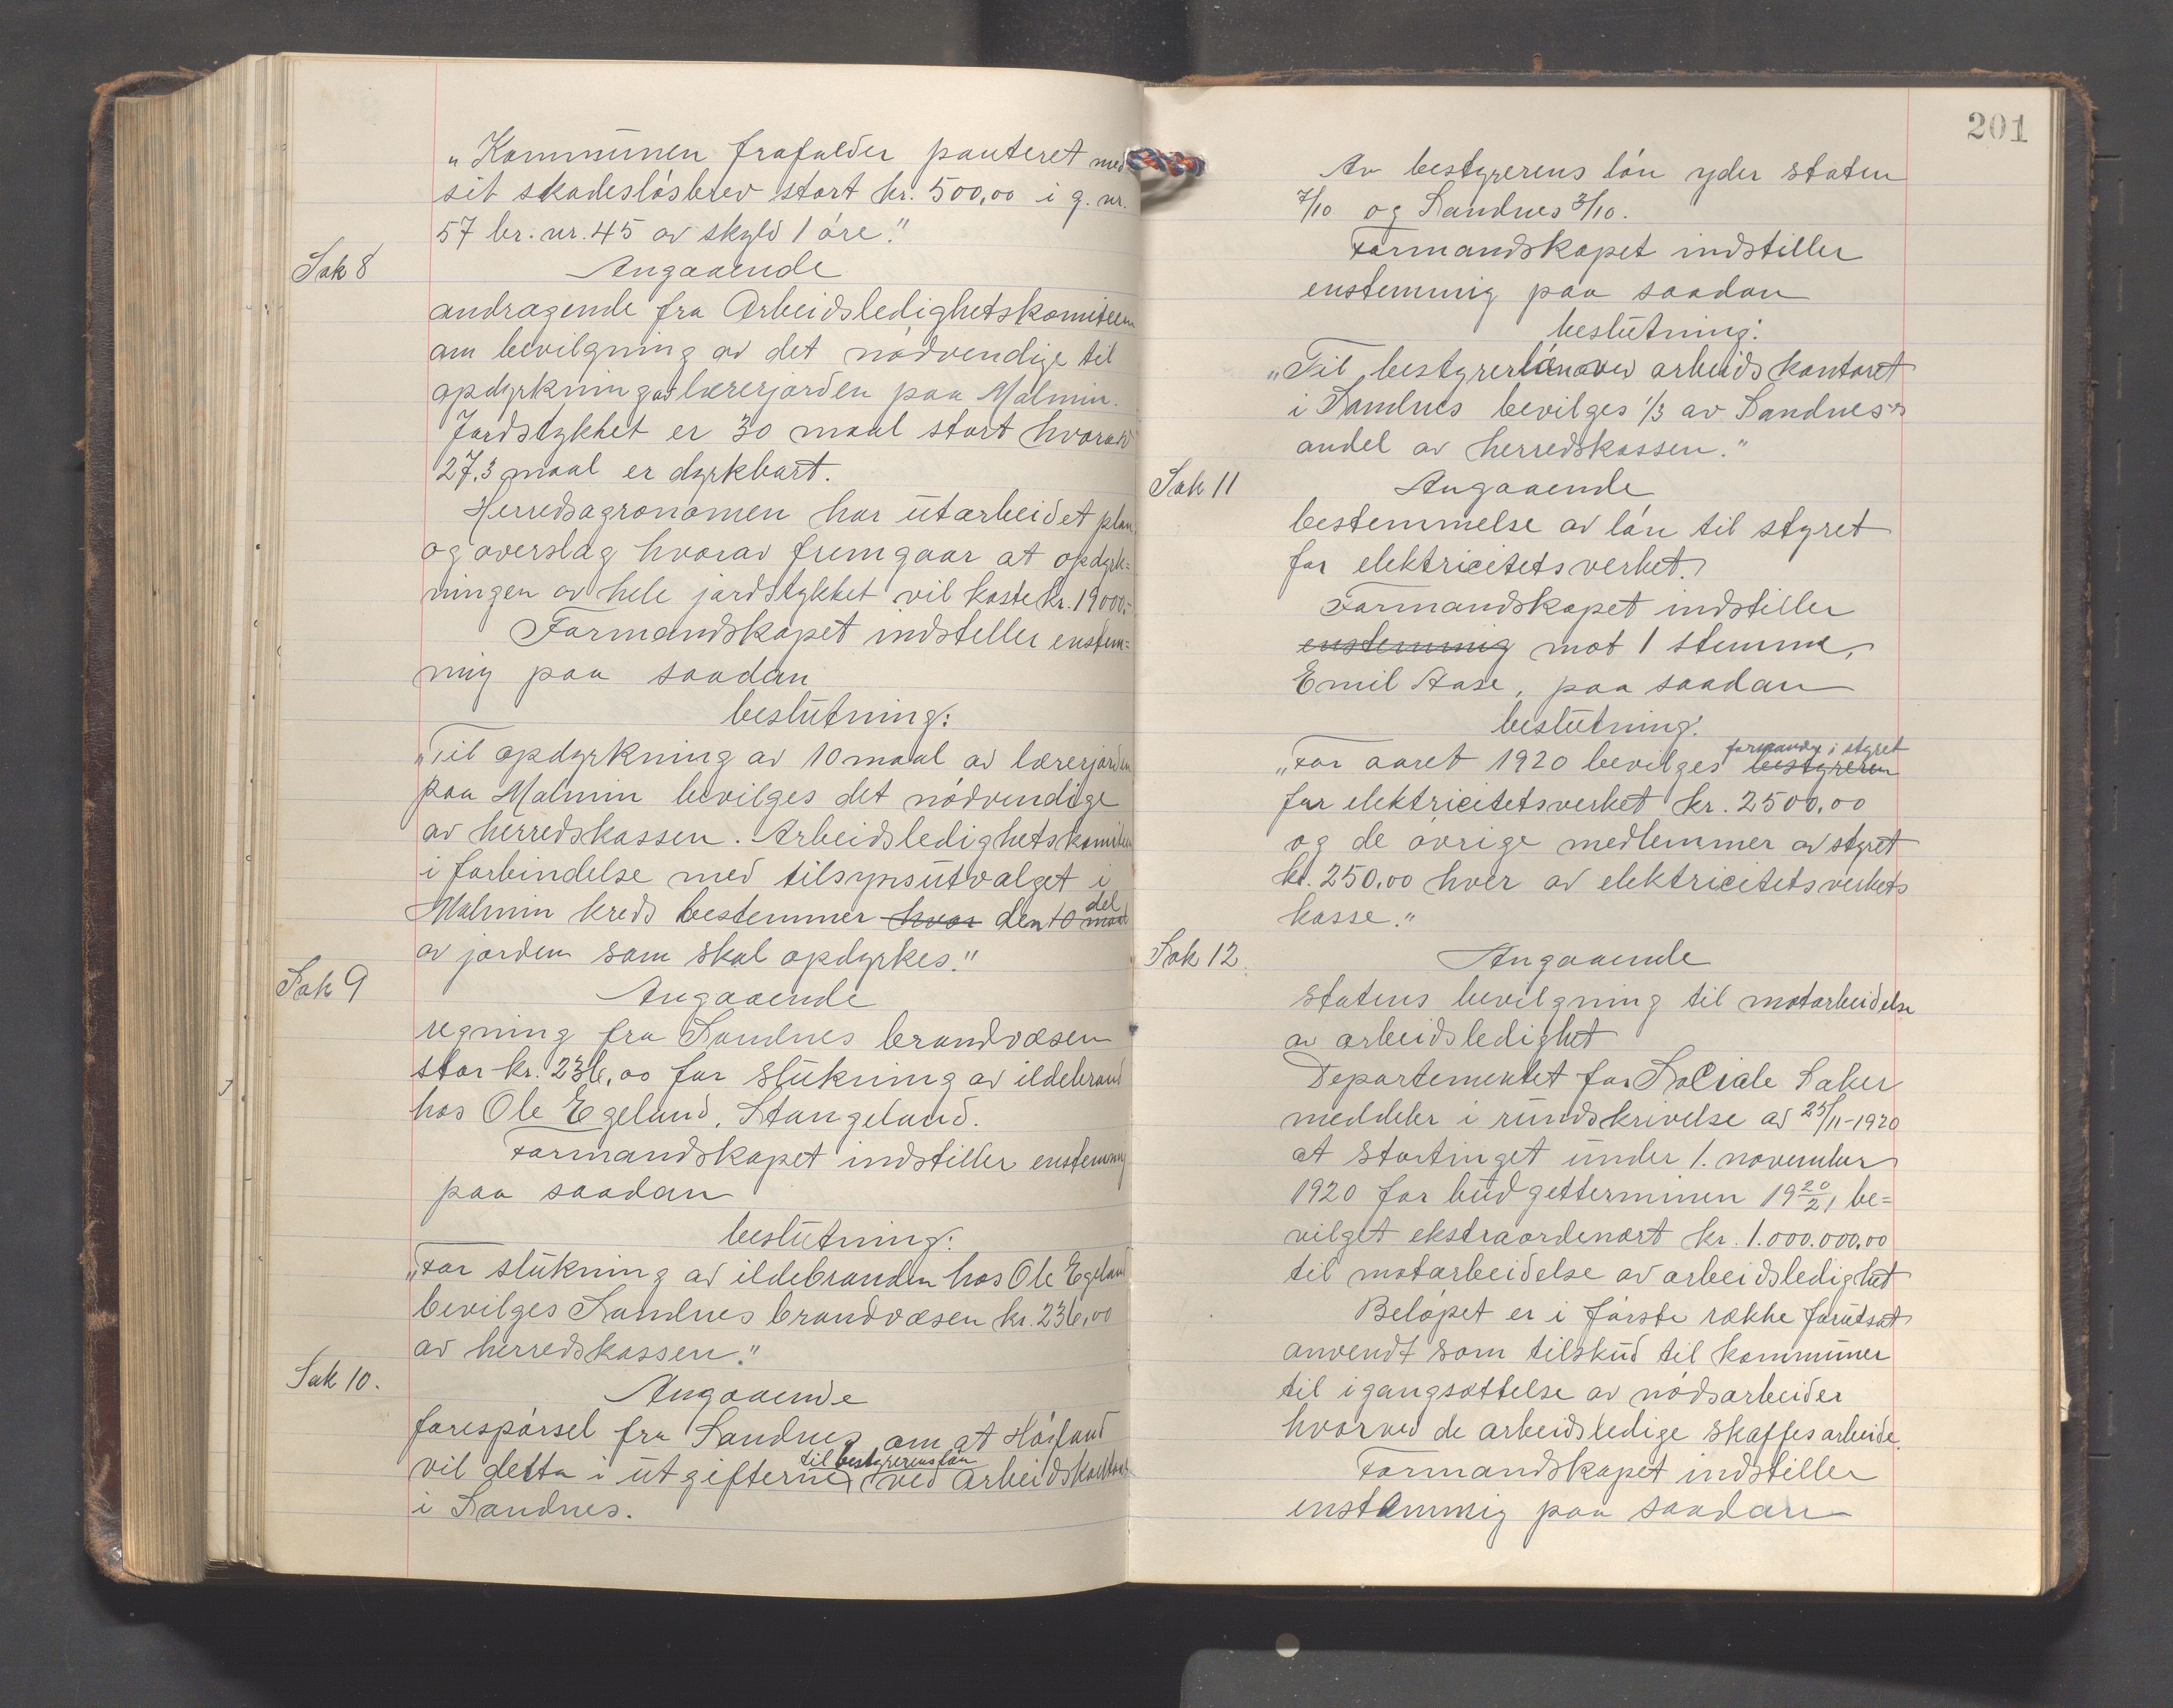 „Kommunen frafalder panteret med
sit skadesløsbrev stort kr. 500,00 i g. nr.
57 br. nr. 45 av skyld 1 øre."
Sak 8 Angaaende
andragende fra Arbeidsledighetskomiteen
om bevilgning av det nødvendige til
opdyrkning av lærerjorden paa Malmin.
Jordstykket er 30 maal stort hvorav
27.3 maal er dyrkbart.
Herredsagronomen har utarbeidet plan
og overslag hvorav fremgaar at opdyrk=
ningen av hele jordstykket vil koste kr. 19000,-
Formandskapet indstiller enstem=
mig paa saadan
beslutning:
„Til opdyrkning av 10 maal av lærerjorden
paa Malmin bevilges det nødvendige
av herredskassen. Arbeidsledighetskomiteen
i forbindelse med tilsynsutvalget i
Malmin kreds bestemmer hvor den 10 maal del
av jorden som skal opdyrkes."
Sak 9 Angaaende
regning fra Sandnes brandvæsen
stor kr. 236,00 for slukning av ildebrand
hos Ole Egeland, Stangeland.
Formandskapet indstiller enstemmig
paa saadan
beslutning:
„For slukning av ildebranden hos Ole Egeland
bevilges Sandnes brandvæsen kr. 236,00
av herredskassen."
Sak 10. Angaaende
forespørsel fra Sandnes om at Høiland
vil delta i utgifterne til bestyrerens løn ved arbeidskontoret
i Sandnes.
201
Av bestyrerens løn yder staten
7/10 og Sandnes 3/10.
Formandskapet indstiller
enstemmig paa saadan
beslutning:
„Til bestyrerlønnen ved arbeidskontoret
i Sandnes bevilges 1/3 av Sandnes's
andel av herredskassen."
Sak 11 Angaaende
bestemmelse av løn til styret
for elektricitetsverket.
Formandskapet indstiller
enstemmig mot 1 stemme,
Emil Aase, paa saadan
beslutning:
„For aaret 1920 bevilges bestyreren formand i styret
for elektricitetsverket kr. 2500,00
og de øvrige medlemmer av styret
kr. 250,00 hver av elektricitetsverkets
kasse."
Sak 12. Angaaende
statens bevilgning til motarbeidelse
av arbeidsledighet
Departementet for Sociale Saker
meddeler i rundskrivelse av 25/11-1920
at stortinget under 1. november
1920 for budgetterminen 19 20/21 be=
vilget ekstraordenært kr. 1.000.000,00
til motarbeidelse av arbeidsledighet
Beløpet er i første række forutsat
anvendt som tilskud til kommuner
til igangsættelse av nødsarbeider
hvorved de arbeidsledige skaffes arbeide.
Formandskapet indstiller
enstemmig paa saadan